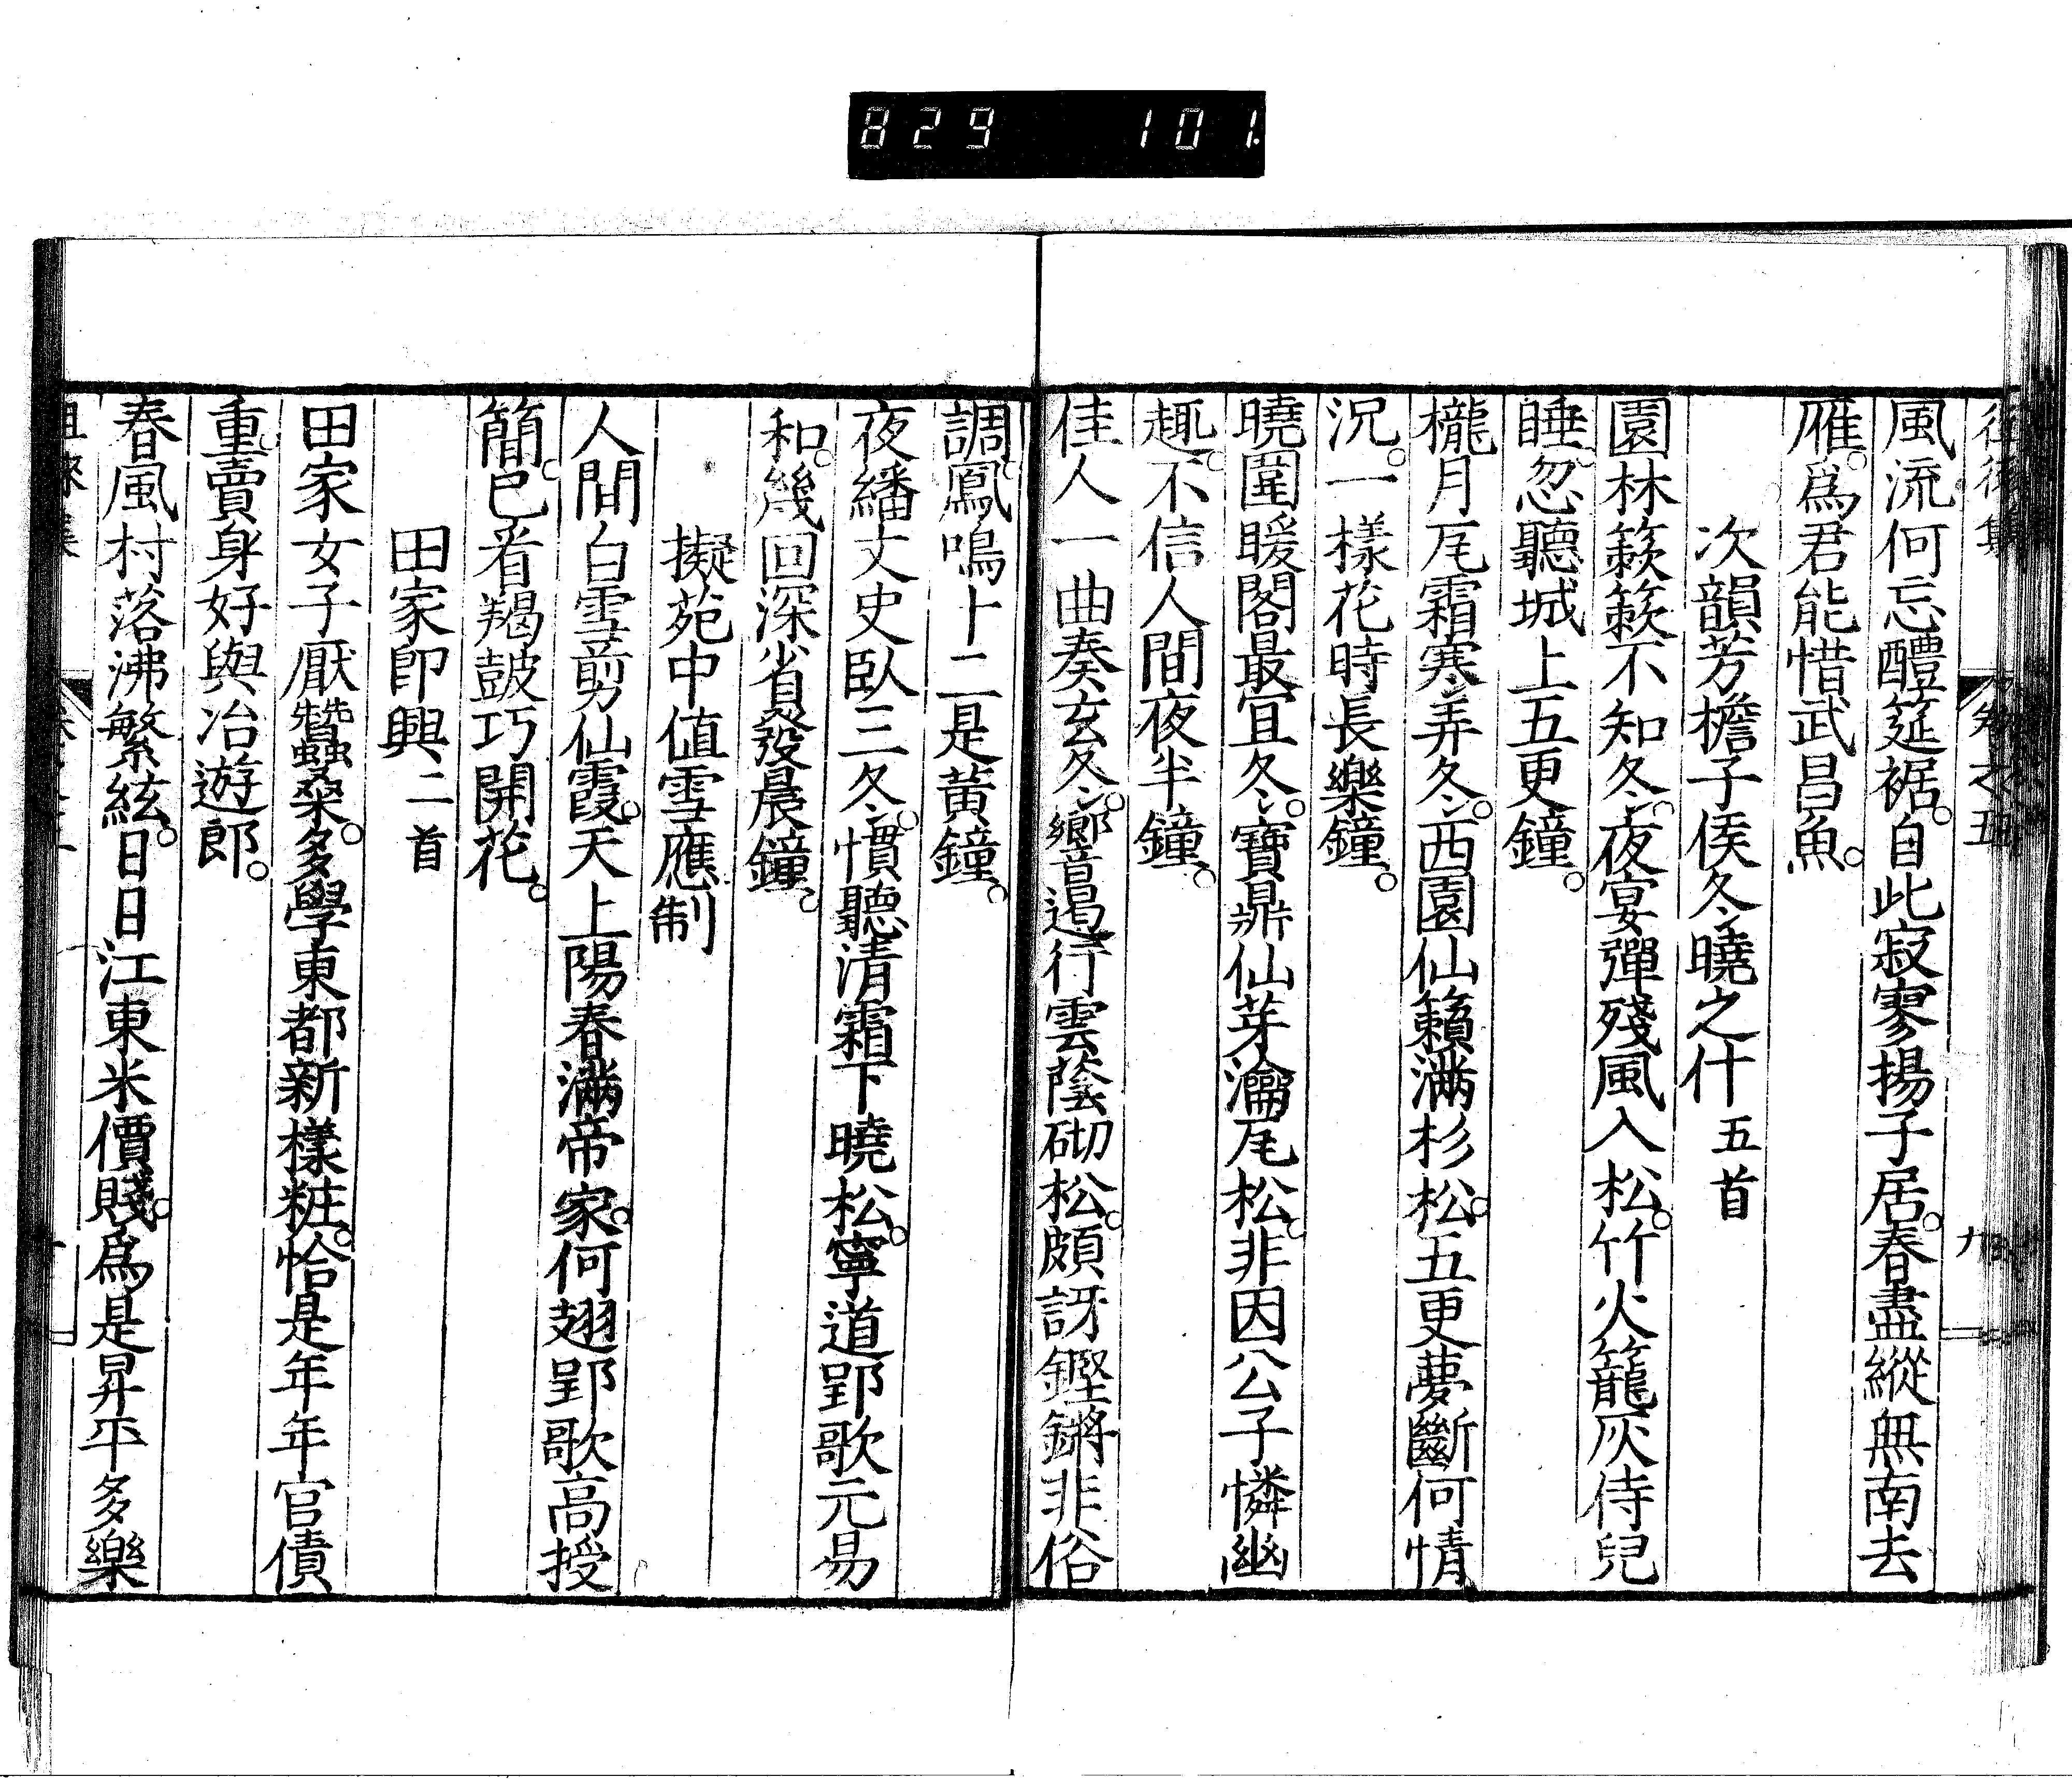 829 101
風流何忘醴筵裾。自此寂寥揚子居。春盡縱無南去
雁。爲君能惜武昌魚。
次韻芳檐子侯冬曉之什 五首
園林簌簌不知冬。夜宴彈殘風入松。竹火籠灰侍兒
睡。忽聽城上五更鐘。
櫳月瓦霜寒弄冬。西園仙籟滿杉松。五更夢斷何情
況。一樣花時長樂鐘。
曉圍暖閣最宜冬。寶鼎仙芽瀹瓦松。非因公子憐幽
趣。不信人間夜半鐘。
佳人一曲奏玄冬。響遏行雲蔭砌松。頗訝鏗鏘非俗
調。鳳鳴十二是黃鐘。
夜繙文史臥三冬。慣聽清霜下曉松。寧道郢歌元易
和。幾回深省發晨鐘。
擬苑中值雪應制
人間白雪剪仙霞。天上陽春滿帝家。何翅郢歌高授
簡。已看羯鼓巧開花。
田家即興 二首
田家女子厭蠶桑。多學東都新樣粧。恰是年年官債
重。賣身好與冶遊郎。
春風村落沸繁絃。日日江東米價賤。爲是昇平多樂